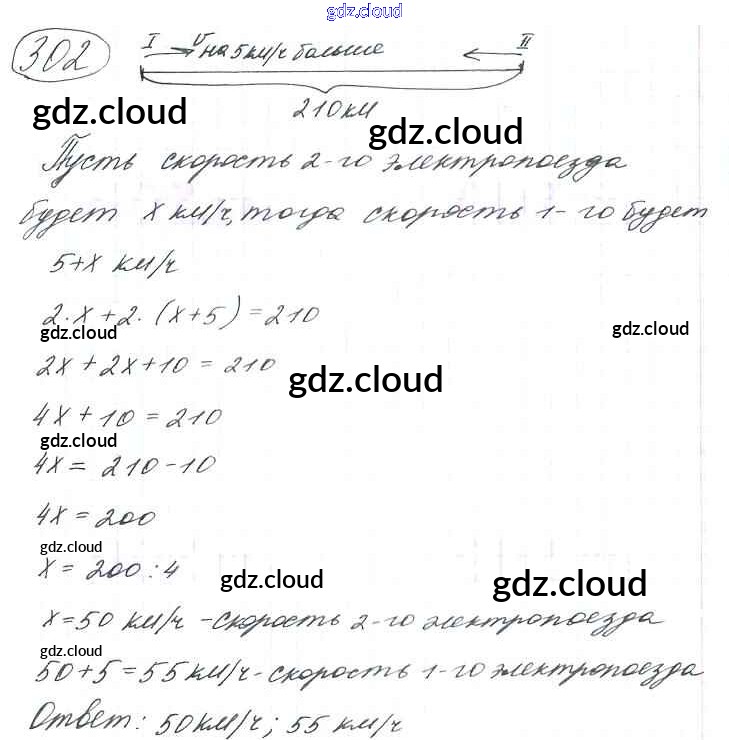 gdz.cloud
302 I V на 5 км/ч больше II
gdz.cloud 210 км gdz.cloud
Пусть скорость 2-го электропоезда
будет x км/ч, тогда скорость 1-го будет
5+x км/ч
2·x+2·(x+5)=210
gdz.cloud gdz.cloud
2x+2x+10=210
gdz.cloud
4x+10=210
gdz.cloud
4x=210-10
4x=200
gdz.cloud
x=200:4
gdz.cloud gdz.cloud
x=50 км/ч -скорость 2-го электропоезда
gdz.cloud
50+5=55 км/ч-скорость 1-го электропоезда
Ответ: 50 км/ч; 55 км/ч